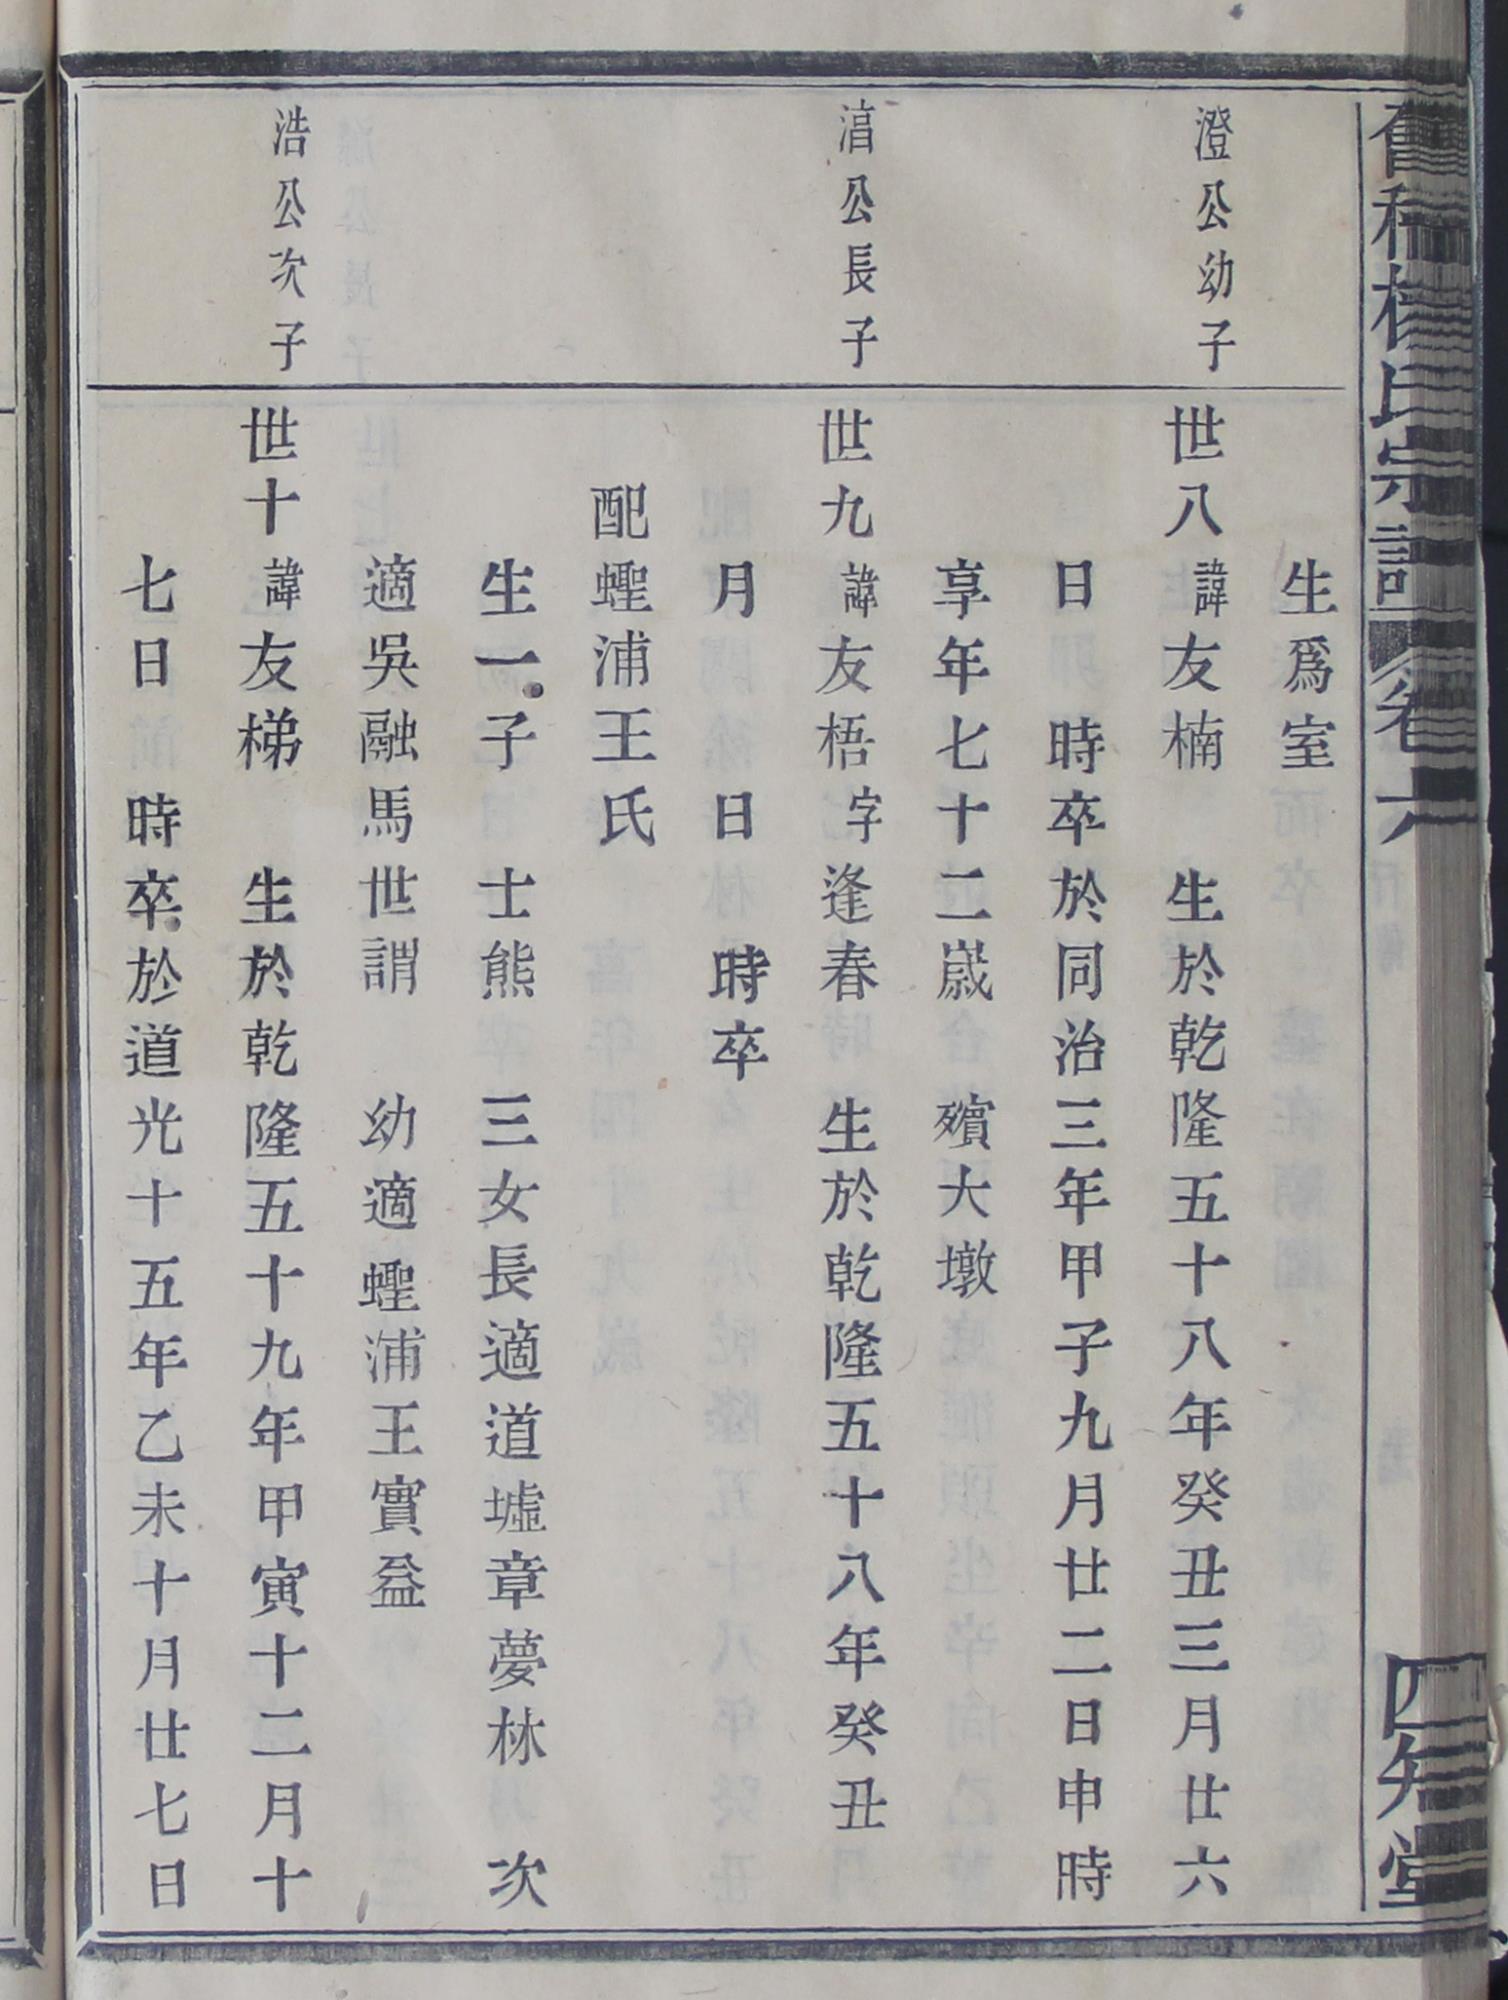 氏宗譜 卷六 四知堂
生爲室
澄公幼子
世八諱友楠 生於乾隆五十八年癸丑三月廿六
日 時卒於同治三年甲子九月廿二日申時
享年七十二嵗 殯大墩
湻公長子
世九諱友梧字逢春 生於乾隆五十八年癸丑
月 日 時卒
配蟶浦王氏
生一子 士熊 三女長適道墟章夢林 次
適吳融馬世謂 幼適蟶浦王實益
浩公次子
世十諱友梯 生於乾隆五十九年甲寅十二月十
七日 時卒於道光十五年乙未十月廿七日